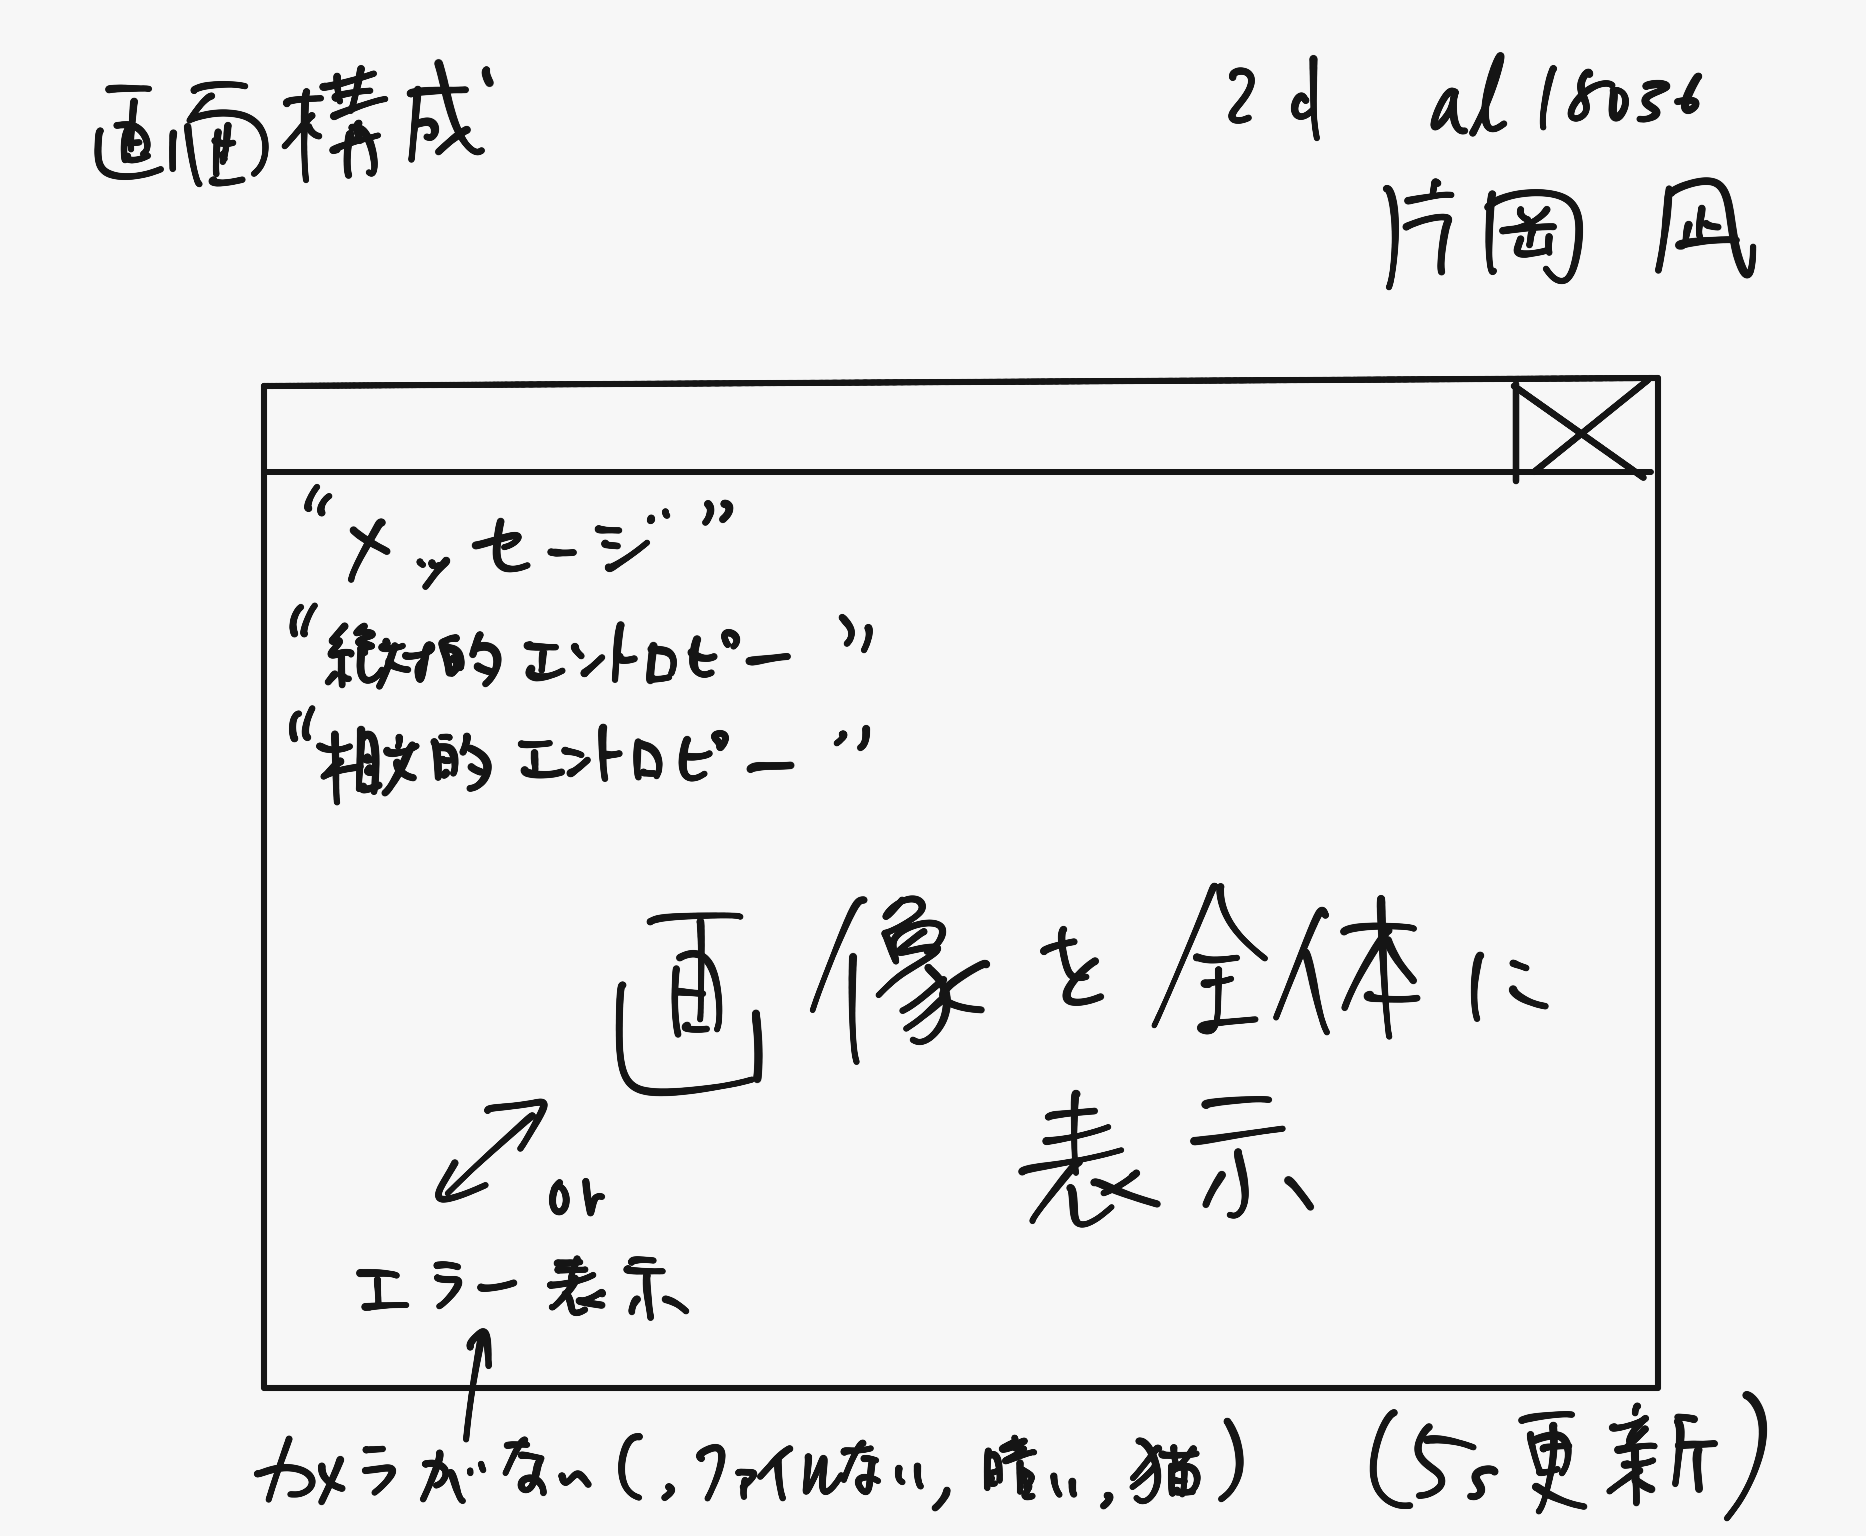 画面構成
2d al18036
片岡 凪
“メッセージ”
“絶対的エントロピー ”
“相対的エントロピー ”
画像を全体に
表示
or
エラー表示
カメラがない(,ファイルない,暗い,猫)
(5s更新)